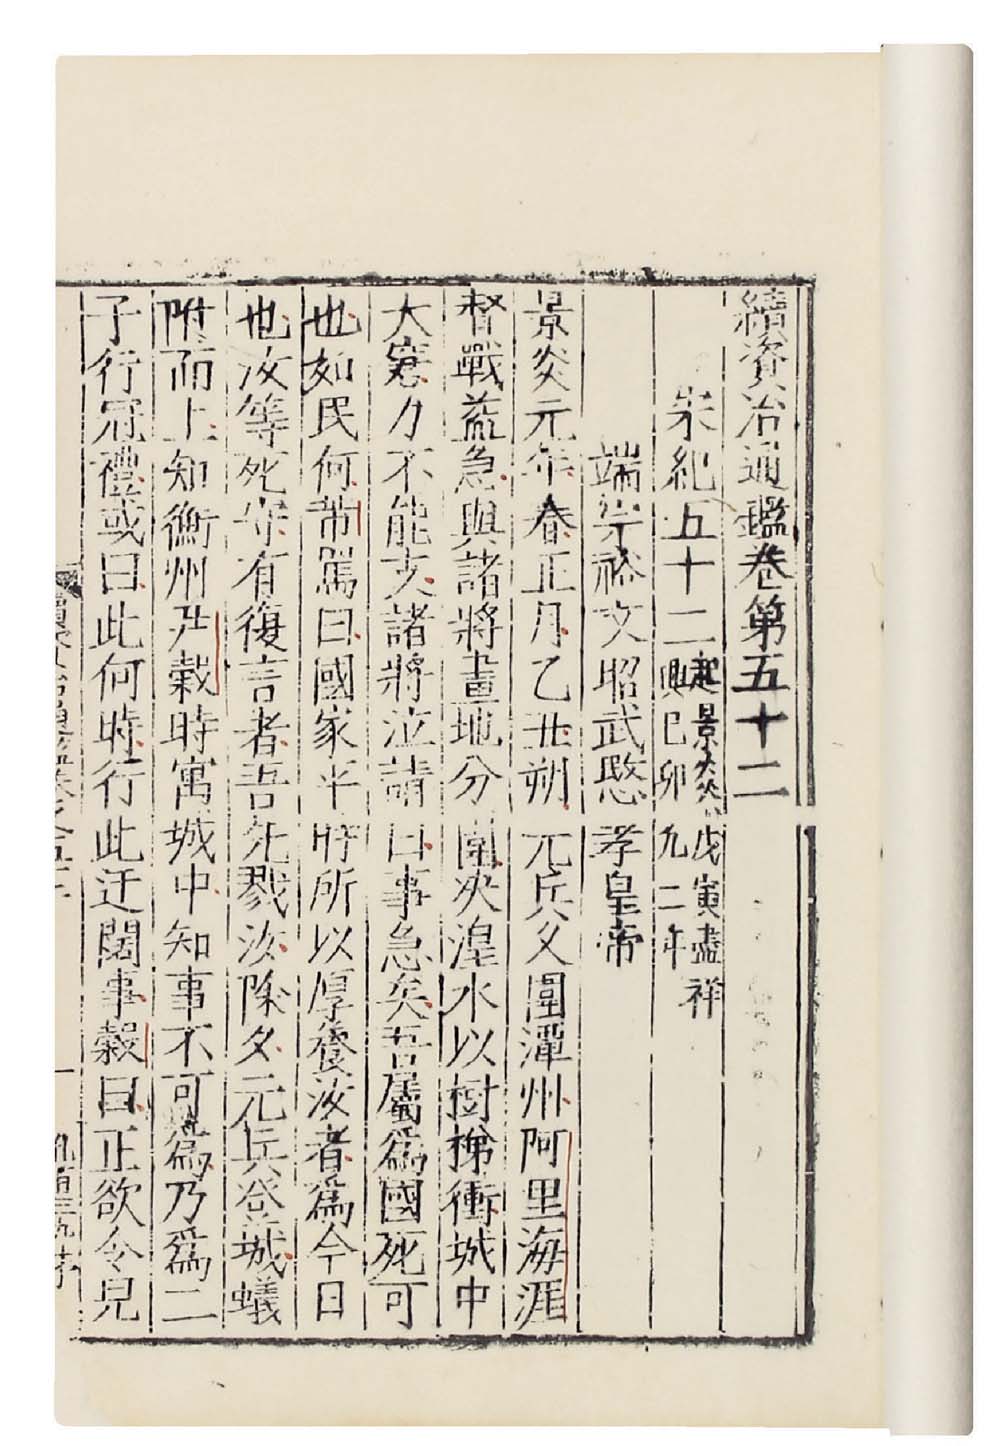 續資治通鑑卷第五十二
宋紀五十二起景炎戊寅盡祥
興己卯九二年
端宗裕文昭武愍孝皇帝
景炎元年春正月乙丑朔元兵父圍潭州阿里海涯
督戰益急與諸將畫地分圍決湟水以樹梯衝城中
大窘力不能支諸將泣請曰事急矣吾屬爲國死可
也如民何芾罵曰國家平時所以厚養汝者爲今日
也汝等死守有復言者吾先戮汝除夕元兵登城蟻
附而上知衡州尹穀時寓城中知事不可爲乃爲二
子行冠禮或曰此何時行此迂闊事穀曰正欲令兒